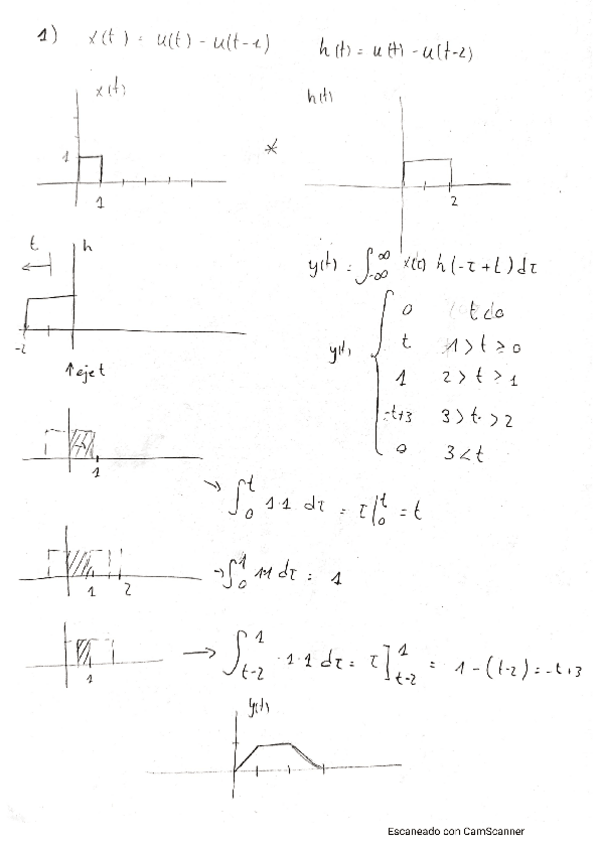 1) x(t) = u(t) - u(t-1)    h(t) = u(t) - u(t-2)
x(t)    h(t)
1    *
1    2
t    h
y(t) = ∫_{-∞}^{∞} x(τ) h(-τ+t) dτ
-2
↑ eje t
y(t) {
0    t<0
t    1>t≥0
1    2>t>1
-t+3    3>t>2
0    3<t
1
→ ∫_0^t 1·1 dτ = τ|_0^t = t
1 2    → ∫_0^1 1·1 dτ = 1
1    → ∫_{t-2}^1 ·1·1 dτ = τ]_{t-2}^1 = 1-(t-2) = -t+3
y(t)
Escaneado con CamScanner